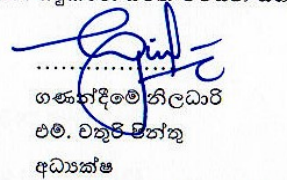 ....................
ගණන්දීමේ නිලධාරි
එම්. චතුරි පින්තු
අධ්‍යක්ෂ